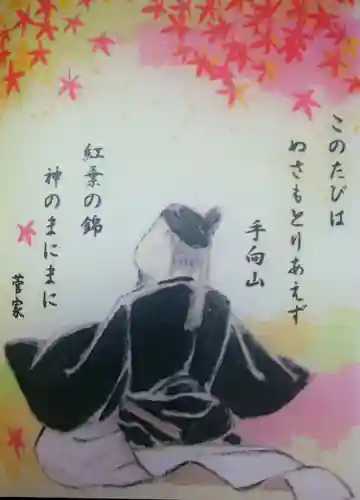 このたびは
ぬさもとりあえず
手向山
紅葉の錦
神のまにまに
菅家